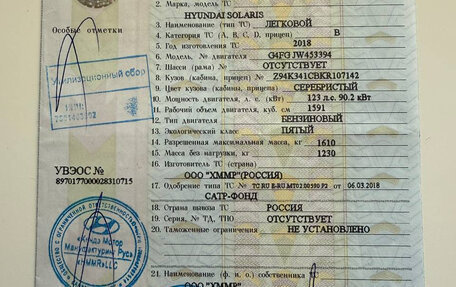 2. Марка, модель ТС
HYUNDAI SOLARIS
3. Наименование (тип ТС) ЛЕГКОВОЙ
Особые отметки
4. Категория ТС (А, В, С, D, прицеп) В
5. Год изготовления ТС 2018
6. Модель, № двигателя G4FG JW453394
7. Шасси (рама) № ОТСУТСТВУЕТ
8. Кузов (кабина, прицеп) № Z94K341CBKR107142
Утилизационный сбор
9. Цвет кузова (кабины, прицепа) СЕРЕБРИСТЫЙ
10. Мощность двигателя, л. с. (кВт) 123 л.с. 90.2 кВт
11. Рабочий объем двигателя, куб. см 1591
12. Тип двигателя БЕНЗИНОВЫЙ
13. Экологический класс ПЯТЫЙ
14. Разрешенная максимальная масса, кг 1610
15. Масса без нагрузки, кг 1230
16. Изготовитель ТС (страна)
УВЭОС №
ООО "ХММР"(РОССИЯ)
8970177000028310715
17. Одобрение типа ТС № ТС RU E-RU.МТ02.00590.Р2 от 06.03.2018
САТР-ФОНД
18. Страна вывоза ТС РОССИЯ
19. Серия, № ТД, ТПО ОТСУТСТВУЕТ
20. Таможенные ограничения НЕ УСТАНОВЛЕНО
Мотор
Мануфактуринг Рус
HMMR LLC
21. Наименование (ф. и. о.) собственника ТС
ООО "ХММР"